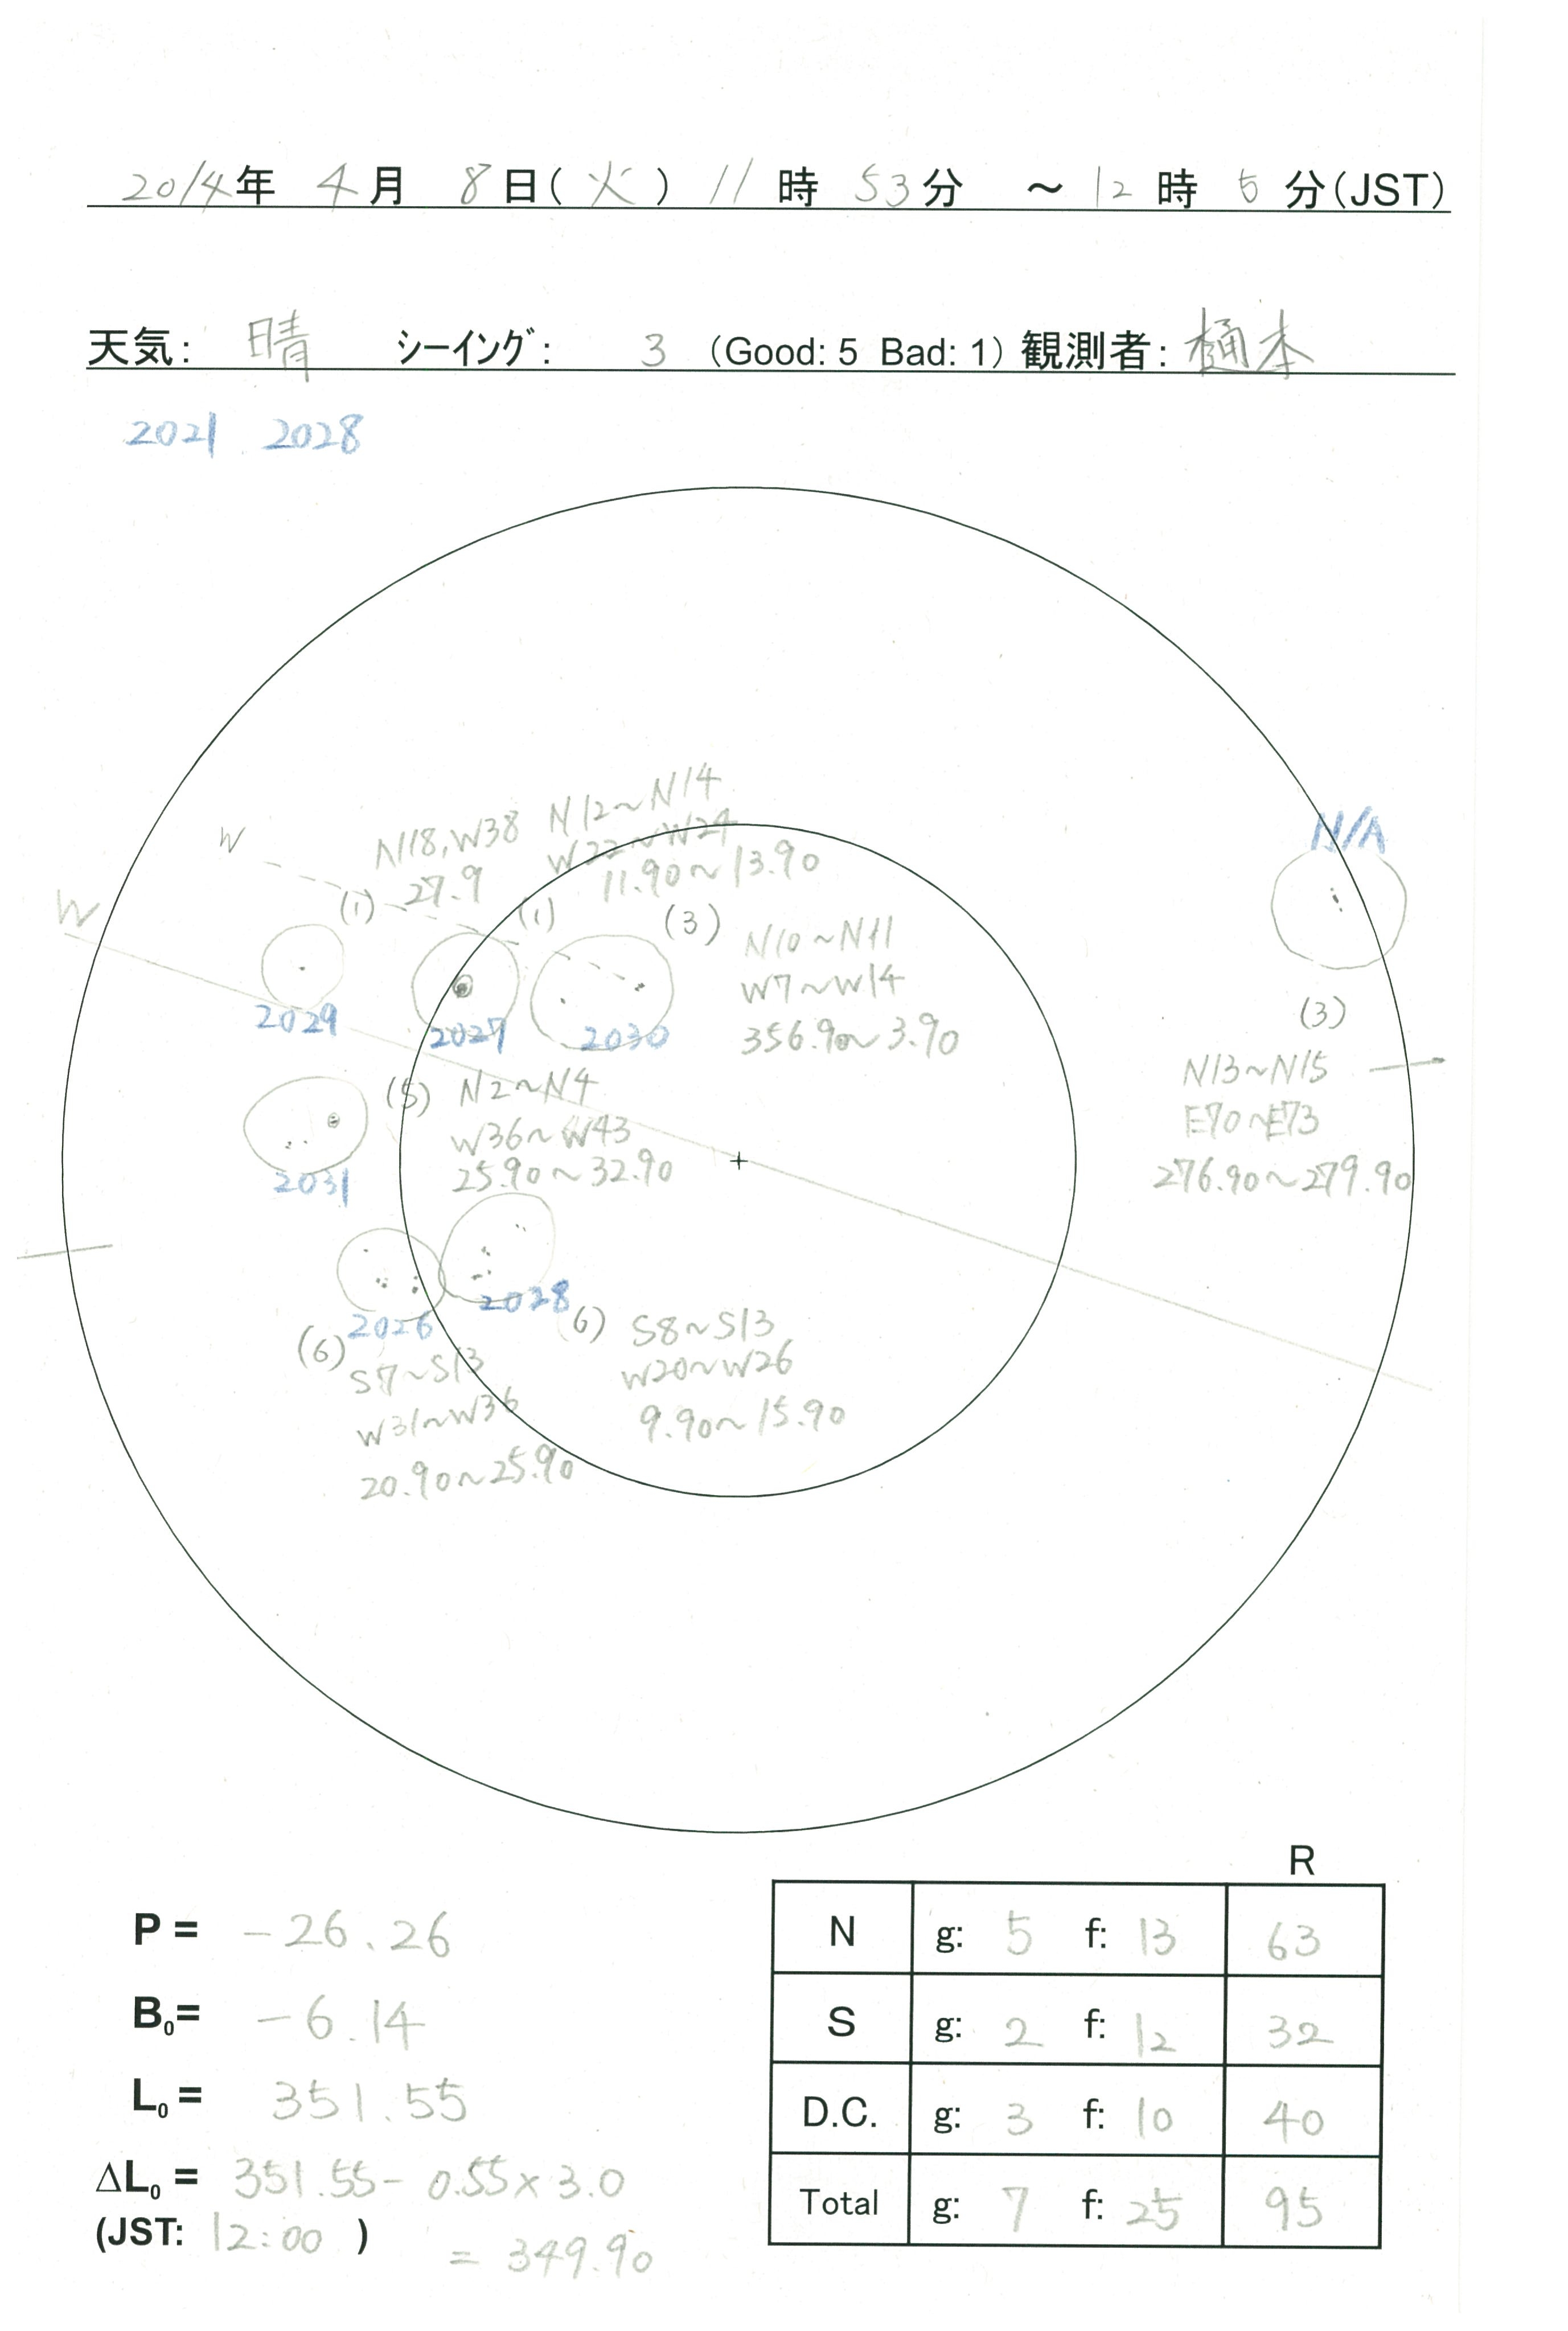 2014年 4月 8日(火) 11時 53分 ～12時 5分(JST)
天気: 晴 シーイング: 3 (Good: 5 Bad: 1) 観測者: 樋本
2021. 2028
N/A
W
W
N18,W38
27.9
(1)
N12~N14
W22~W24
11.90~13.90
(1)
(3)
N10~N11
W7~W14
356.90~3.90
2029
2027
2030
(3)
N13~N15
E70~E73
276.90~279.90
(5)
N2~N4
W36~W43
25.90~32.90
2031
2028
2026
(6)
S8~S13
W20~W26
9.90~15.90
(6)
S7~S13
W31~W36
20.90~25.90
P = -26.26
B0= -6.14
L0 = 351.55
ΔL0 = 351.55- 0.55×3.0
(JST: 12:00 ) = 349.90
R
N g: 5 f: 13 63
S g: 2 f: 12 32
D.C. g: 3 f: 10 40
Total g: 7 f: 25 95